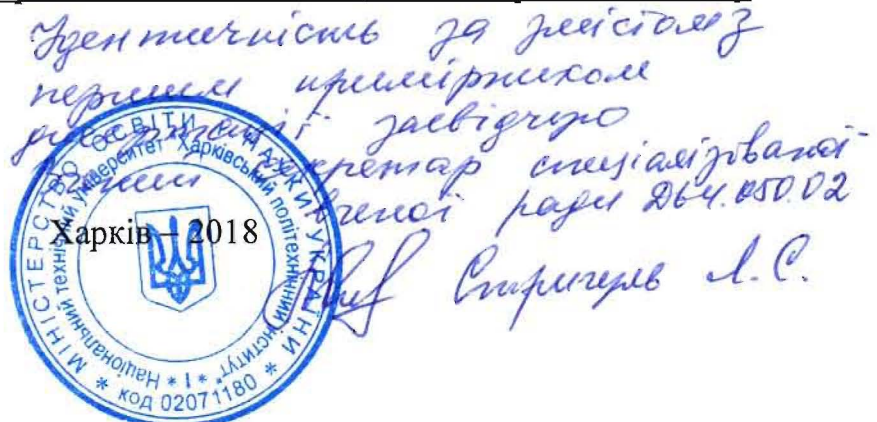 Ідентичність за змістом з
першим примірником
дисертації засвідчую
Вчений секретар спеціалізованої
вченої ради Д64.050.02
Харків – 2018
Стригуль Л.С.
МІНІСТЕРСТВО ОСВІТИ І НАУКИ УКРАЇНИ
Національний технічний університет "Харківський політехнічний інститут"
* 1 *
* код 02071180 *